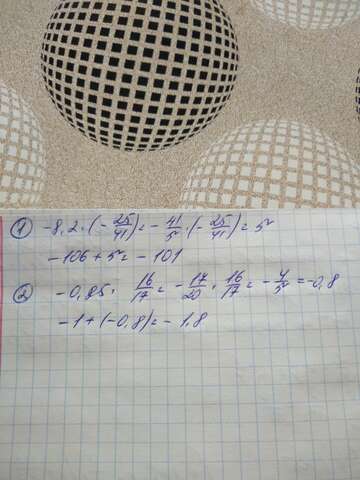 ① -8,2 · (-25/41) = -41/5 · (-25/41) = 5
-106 + 5 = -101
② -0,85 · 16/17 = -17/20 · 16/17 = -4/5 = -0,8
-1 + (-0,8) = -1,8